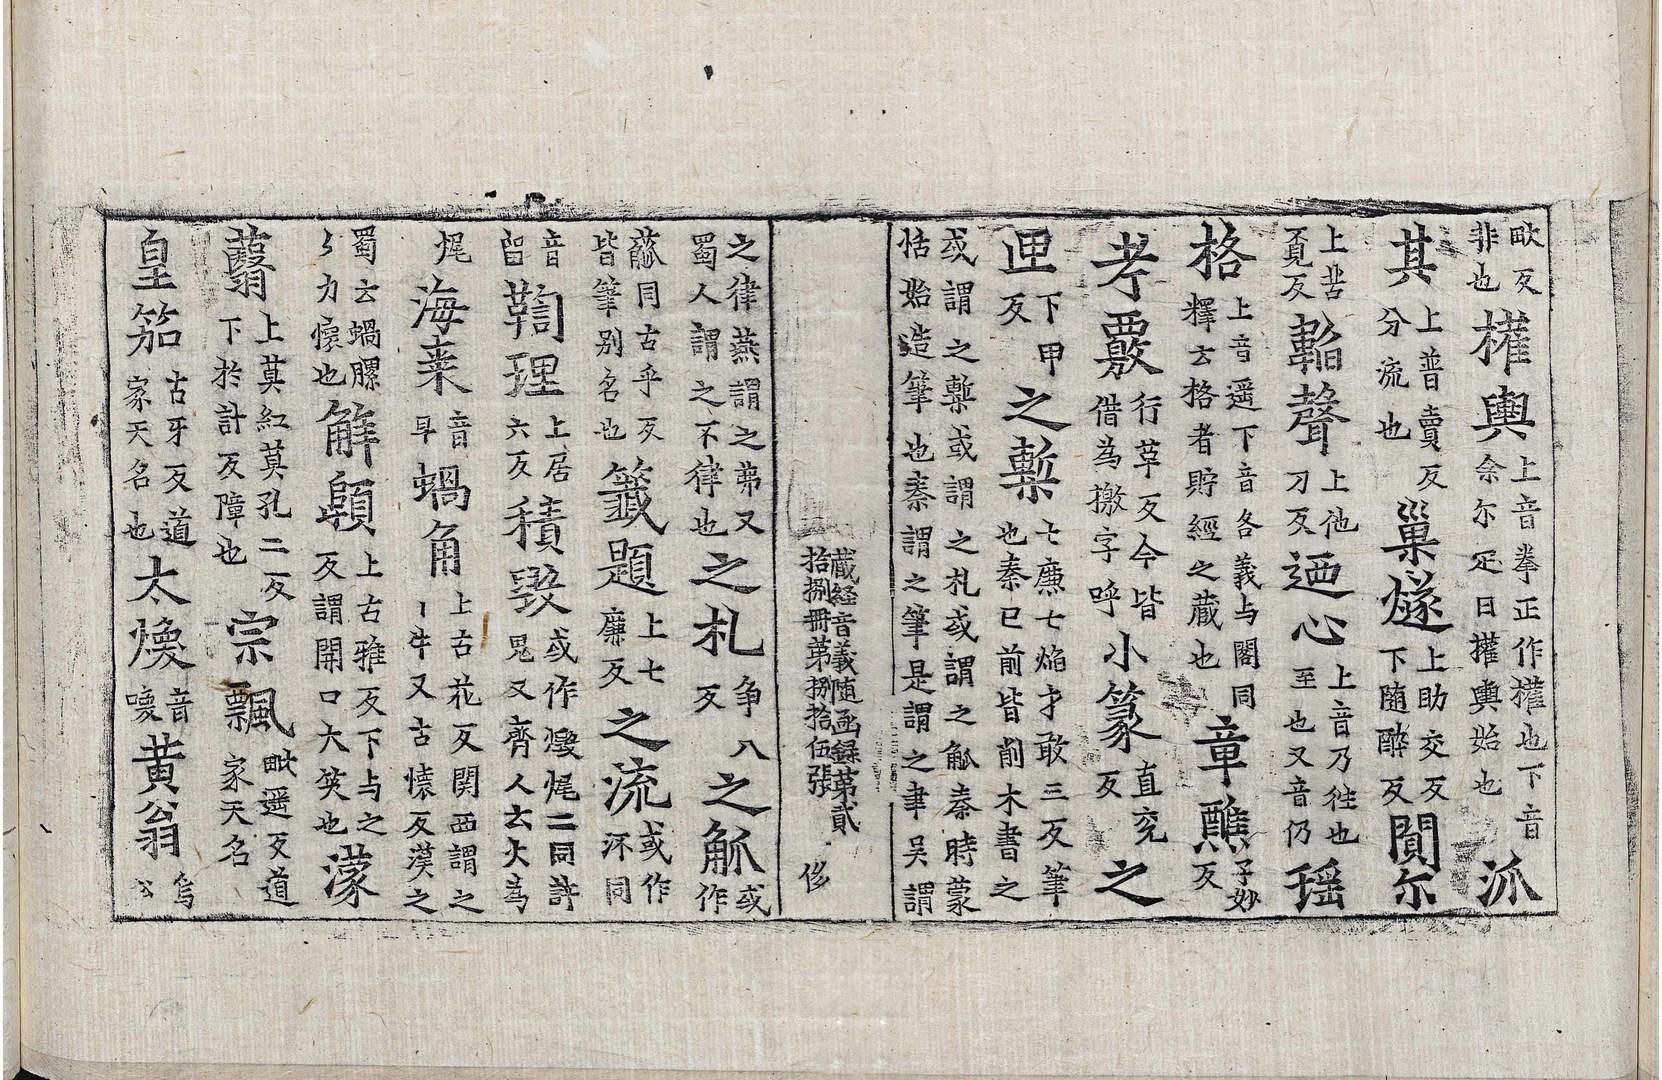 歐反非也權輿上音拳正作權也下音余尔疋曰權輿始也派
其上普賣反分流也巢燧上助交反下随醉反閴尔
上苦覓反鞱聲上他刀反迺心上音乃徃也至也又音仍瑶
格上音遥下音各義与閣同釋云格者貯經之藏也章醮子妙反
考覈行革反今皆借為撽字呼小篆直兖反之
匣下甲反之槧七廉七焰才敢三反筆也秦已前皆削木書之
或謂之槧或謂之札或謂之觚秦時蒙恬始造筆也秦謂之筆是謂之聿吴謂
藏経音義随函録第貳拾捌冊第捌拾伍張 侈
之律燕謂之弗又蜀人謂之不律也之札争八反之觚或作
菰同古乎反皆筆别名也籤題上七廉反之流或作㳅同
音留鞫理上居六反積毀或作燬㷄二同許鬼反又齊人云火為
㷄海来音早蝸角上古花反関西謂之丨牛又古懐反漢之
蜀云蝸㾵〻力懐也解頤上古雅反下与之反謂開口大笑也濛
蘙上莫紅莫孔二反下於計反障也宗飄毗遥反道家天名
皇笳古牙反道家天名也太煥音喚黄翁烏公